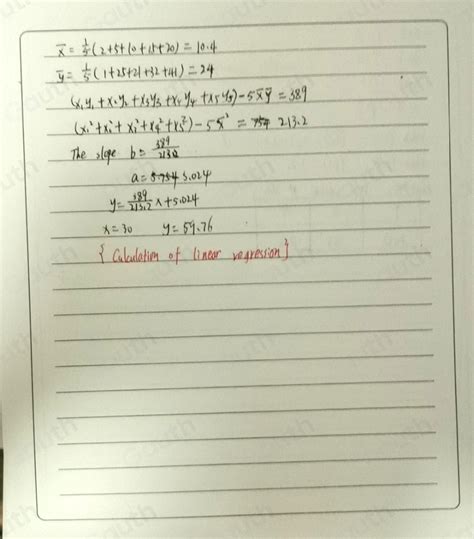 x̄ = 1/5 (2+5+10+15+20) = 10.4
ȳ = 1/5 (1+25+21+32+41) = 24
(x₁y₁ + x₂y₂ + x₃y₃ + x₄y₄ + x₅y₅) - 5x̄ȳ = 389
(x₁² + x₂² + x₃² + x₄² + x₅²) - 5x̄² = 213.2
The slope b = 389/213.2
a = 5.024
y = 389/213.2 x + 5.024
x = 30 y = 59.76
{ Calculation of linear regression }